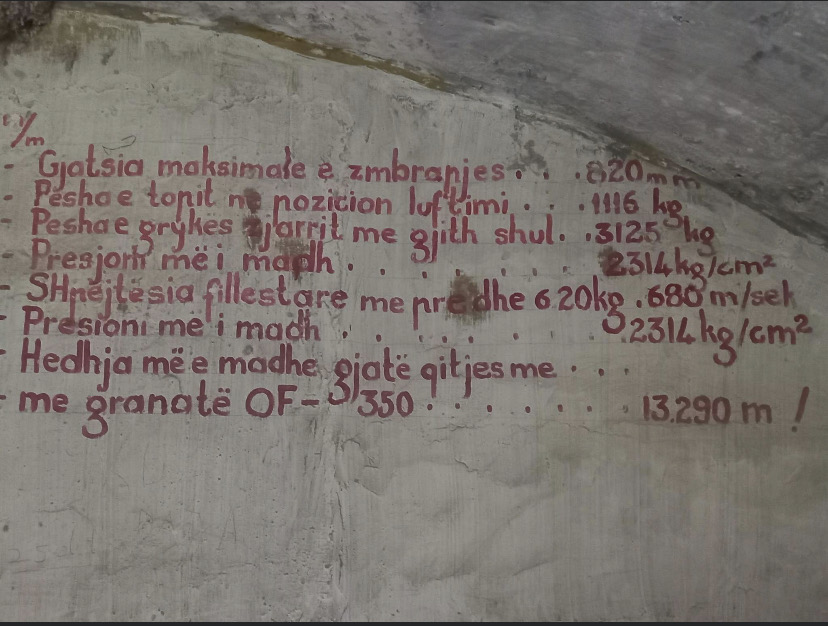 m/m
- Gjatsia maksimale e zmbrapjes . . . 820 mm
- Pesha e topit në pozicion luftimi . . . 1116 kg
- Pesha e grykës zjarrit me gjith shul . . 3125 kg
- Presjoni më i madh . . . . . . . 2314 kg/cm²
- SHpejtësia fillestare me predhe 6 20kg . 680 m/sek
- Presioni më i madh . . . . . . . 2314 kg/cm²
- Hedhja më e madhe gjatë qitjes me . . .
- me granatë OF-350 . . . . . . 13.290 m !